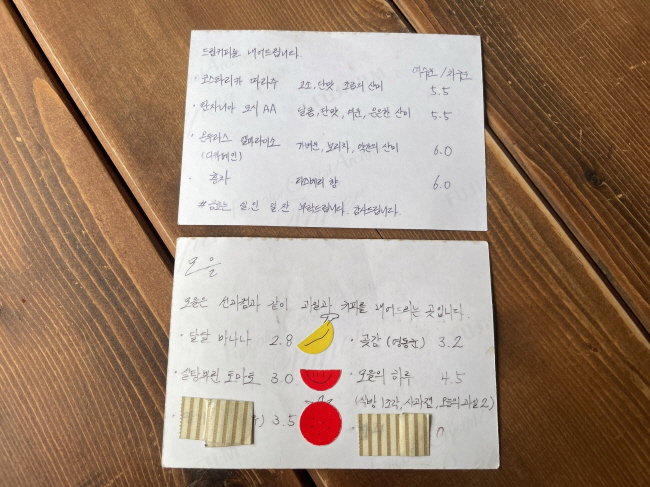 드립커피를 내어드립니다.
· 코스타리카 따라주 고소, 단맛, 조름의 산미 5.5
· 탄자니아 모시 AA 달콤, 단맛, 여운, 은은한 산미 5.5
· 온두라스
(디카페인) 가벼운, 보리차, 약간의 산미 6.0
· 홍차 라즈베리 향 6.0
# 음료는 일 인 일 잔 부탁드립니다. 감사드립니다.
오월
오월은 선과점과 같이 과일과 커피를 내어드리는 곳입니다
· 달달 바나나 2.8
· 설탕뿌린 토마토 3.0
3.5
· 곶감 (영동군) 3.2
· 오월의 하루 4.5
(식빵 1조각, 사과잼, 오늘의 과일 2)